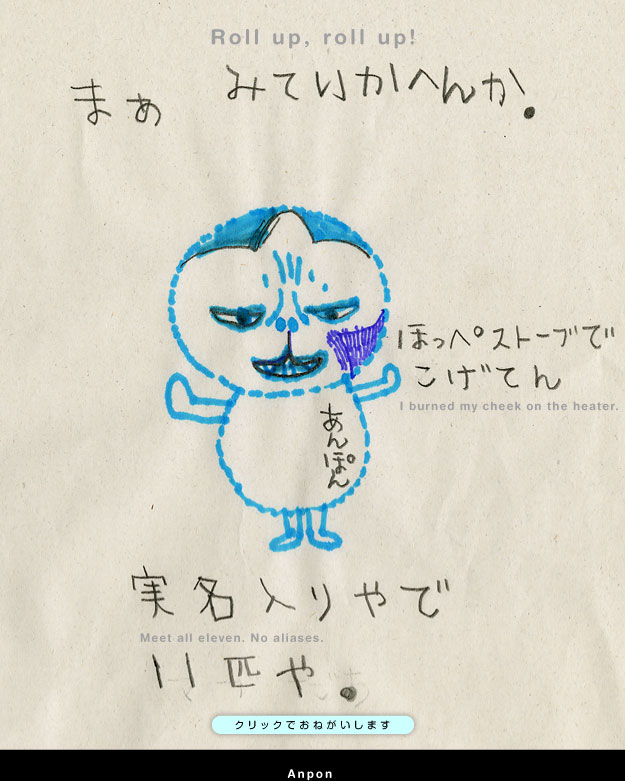 Roll up, roll up!
まぁ みていかへんか.
ほっぺストーブで
こげてん
I burned my cheek on the heater.
あんぽん
実名入りやで
Meet all eleven. No aliases.
11匹や.
クリックでおねがいします
Anpon